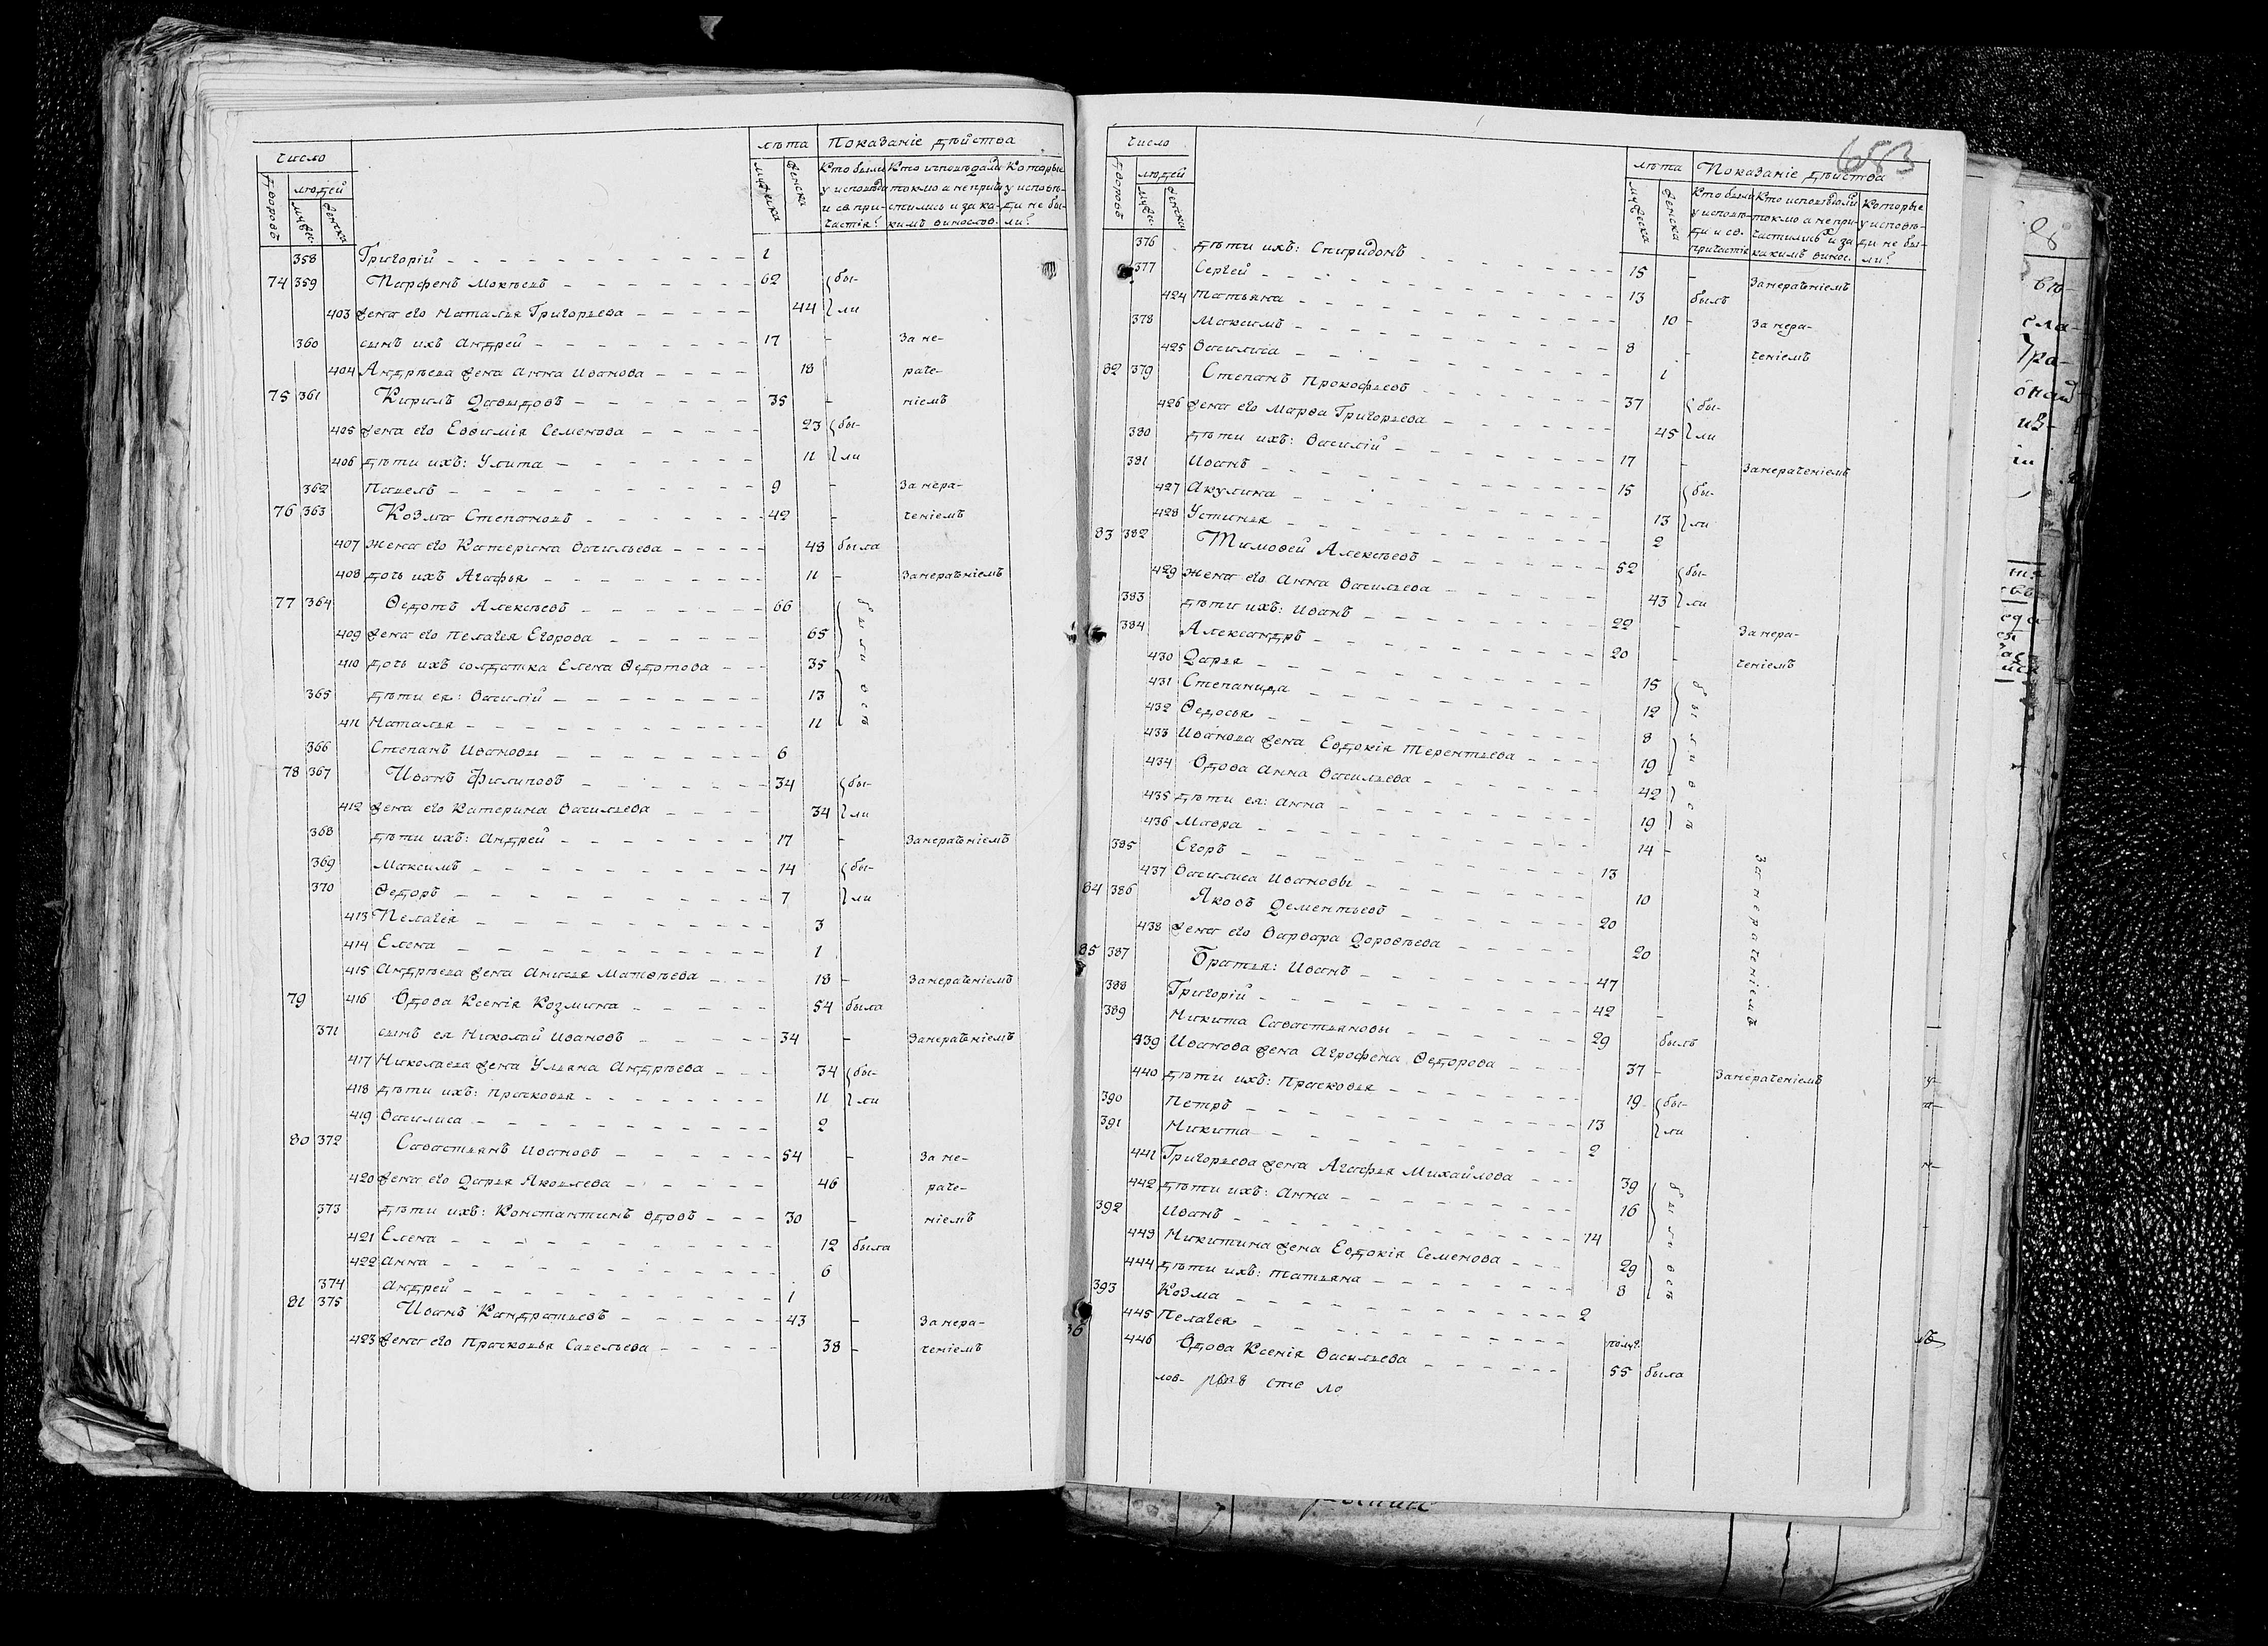 число
лѣта Показаніе дѣйства
людей
дворовъ мужес. женска мужеска женска
Кто были у исповѣди и св. причастія? Кто исповѣдали токмо а не причастились и за каким винослов. Которые у исповѣди не были?
358 Григорій 1
74 359 Парфенъ Мокѣевъ 62 бы-
403 жена его Наталья Григорьева 44 ли
360 сынъ ихъ Андрей 17 - За не-
404 Андрѣева жена Анна Иванова 18 раче-
75 361 Кирилъ Давыдовъ 35 - ніемъ
405 жена его Евѳимія Семенова 23 бы-
406 дѣти ихъ: Улита 11 ли
362 Павелъ 9 - За нера-
76 363 Козма Степановъ 42 - ченіемъ
407 жена его Катерина Васильева 48 была
408 дочь ихъ Агафья 11 - Занераченіемъ
77 364 Ѳедотъ Алексѣевъ 66 были
409 жена его Пелагея Егорова 65
410 дочь ихъ солдатка Елена Ѳедотова 35
365 дѣти ея: Василій 13 всѣ
411 Наталья 11
366 Степанъ Ивановы 6
78 367 Иванъ Филиповъ 34 бы-
412 жена его Катерина Васильева 34 ли
368 дѣти ихъ: Андрей 17 - Занераченіемъ
369 Максимъ 14 бы-
370 Ѳедоръ 7 ли
413 Пелагія 3
414 Елена 1
415 Андрѣева жена Анисья Матвѣева 18 - Занераченіемъ
79 416 Вдова Ксенія Козмина 54 была
371 сынъ ея Николай Ивановъ 34 - Занераченіемъ
417 Николаева жена Ульяна Андрѣева 34 бы-
418 дѣти ихъ: Прасковья 11 ли
419 Василиса 2
80 372 Савастьянъ Ивановъ 54 - За не-
420 жена его Дарья Яковлева 46 раче-
373 дѣти ихъ: Константинъ вдовъ 30 - ніемъ
421 Елена 12 была
422 Анна 6
374 Андрей 1
81 375 Иванъ Кандратьевъ 43 - За нера-
423 жена его Прасковья Савельева 38 - ченіемъ
653
число
лѣта Показаніе дѣйства
людей
дворовъ мужес. женска мужеска женска
Кто были у исповѣди и св. причастія Кто исповѣдали токмо а не причастились и за каким винос. Которые у исповѣди не были?
376 дѣти ихъ: Спиридонъ 15 - Занераченіемъ
377 Сергей 13 былъ
424 Татьяна 10 - За нера-
378 Максимъ 8 - ченіемъ
425 Василиса 1
82 379 Степанъ Прокофьевъ 37 бы-
426 жена его Марѳа Григорьева 45 ли
380 дѣти ихъ: Василій 17 - Занераченіемъ
381 Иванъ 15 бы-
427 Акулина 13 ли
428 Устинья 2
83 382 Тимоѳей Алексѣевъ 52 бы-
429 жена его Анна Васильева 43 ли
383 дѣти ихъ: Иванъ 22 - За нера-
384 Александръ 20 - ченіемъ
430 Дарья 15 были
431 Степанида 12
432 Ѳедосья 8
433 Иванова жена Евдокія Терентьева 19
434 Вдова Анна Васильева 42 всѣ
435 дѣти ея: Анна 19
436 Мавра 14 -
385 Егоръ 13
437 Василиса Ивановы 10 Занераченіемъ
84 386 Яковъ Дементьевъ 20
438 жена его Варвара Дороѳѣева 20
85 387 Братья: Иванъ 47
388 Григорій 42 -
389 Никита Савастьяновы 29 былъ
439 Иванова жена Агрофена Ѳедорова 37 - Занераченіемъ
440 дѣти ихъ: Прасковья 19 бы-
390 Петръ 13 ли
391 Никита 2
441 Григорьева жена Агафья Михайлова 39 были
442 дѣти ихъ: Анна 16
392 Иванъ 14
443 Никитина жена Евдокія Семенова 29 всѣ
444 дѣти ихъ: Татьяна 8
393 Козма 2
445 Пелагея полуг.
86 446 Вдова Ксенія Васильева 55 была